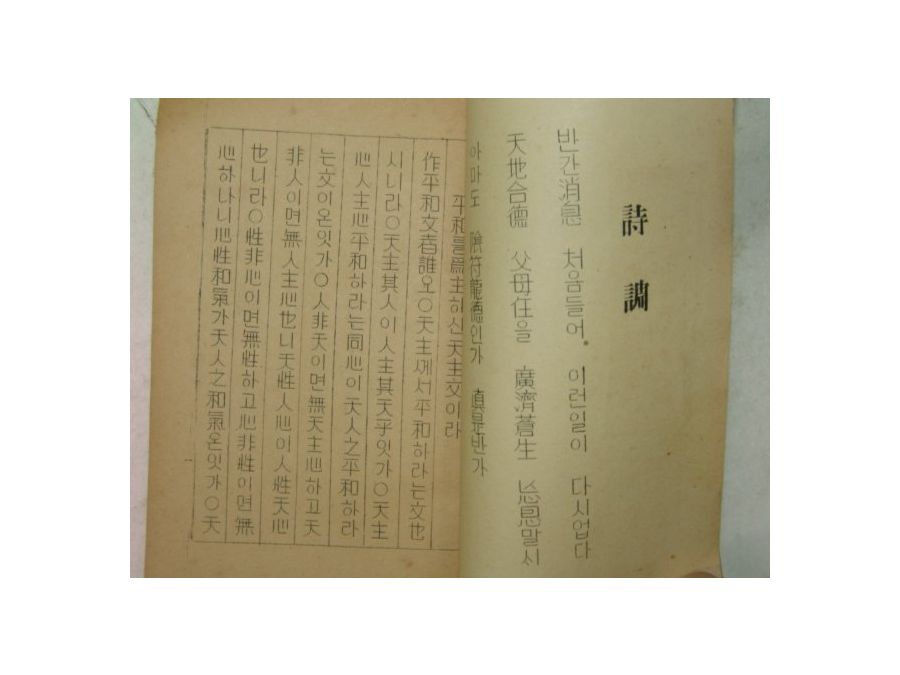 詩調
반간消息 처음들어. 이런일이 다시업다
天地合德 父母任을 廣濟蒼生 慈恩말서
아마도 陰符龍德인가 眞是반가
平和를爲主하신天主文이라
作平和文者誰오○天主께서平和하라는文也
시니라○天主其人이人主其天乎잇가○天主
心人主心平和하라는同心이天人之平和하라
는文이온잇가○人非天이면無天主心하고天
非人이면無人主心也니天性人心이人性天心
也니라○性非心이면無性하고心非性이면無
心하나니心性和氣가天人之和氣온잇가○天